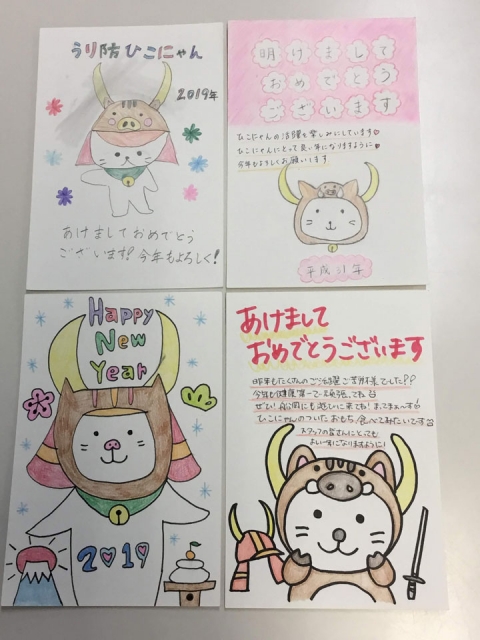 うり防ひこにゃん
2019年
あけましておめでとう
ございます! 今年もよろしく!
明けまして
おめでとう
ございます
ひこにゃんの活躍を楽しみにしています♥
ひこにゃんにとって良い年になりますように♥
今年もよろしくお願いします
平成31年
Happy
New
Year
2019
あけまして
おめでとうございます
昨年もたくさんのご活躍ご苦労様でした??
今年も健康第一で頑張ってね
ぜひ
にも遊びに来てね! まってまぁ〜す
ひこにゃんのついたおもち、食べてみたいです
スタッフの皆さんにとっても
よい1年になりますように!